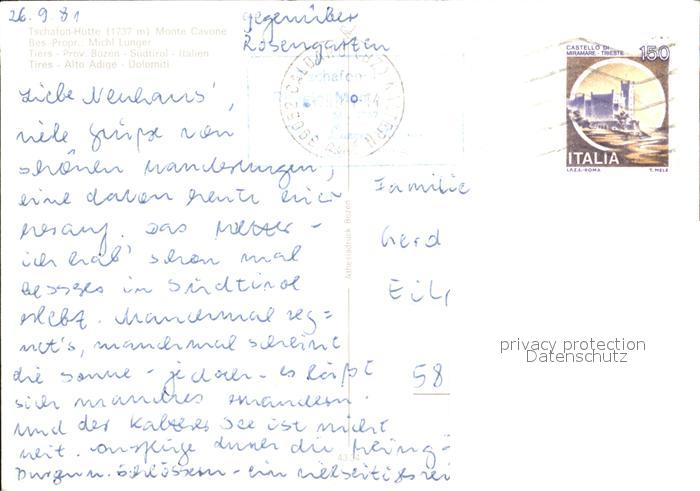 26.9.81
gegenüber
Rosengarten
Tschafon-Hütte (1737 m) Monte Cavone
Bes.-Propr. Michl Lunger
Tiers - Prov. Bozen - Südtirol - Italien
Tires - Alto Adige - Dolomiti
CASTELLO DI
MIRAMARE - TRIESTE
150
ITALIA
I.P.Z.S.-ROMA
T. MELE
Liebe Neuhaus',
viele Grüße von
schönen Wanderungen,
eine davon heute hier
herauf. Das Wetter -
ich hab' schon mal
besseres in Südtirol
erlebt. Manchmal reg=
net's, manchmal scheint
die Sonne - jedoch es läßt
sich manches wandern.
Und der Kalterer See ist nicht
weit. Ausflüge durch die
Burgen u. Schlössern - ein vielseitiges
Familie
Gerd
58
Athesiadruck Bozen
privacy protection
Datenschutz